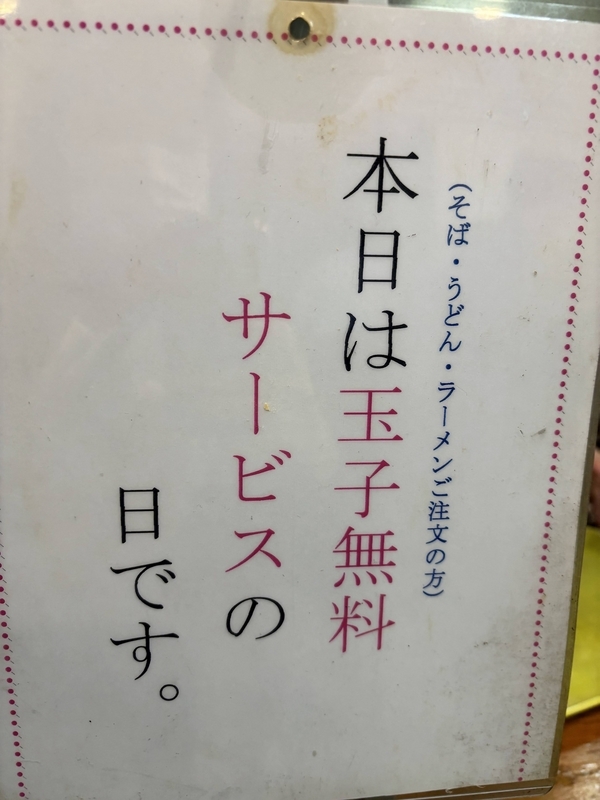 （そば・うどん・ラーメンご注文の方）
本日は玉子無料
サービスの
日です。